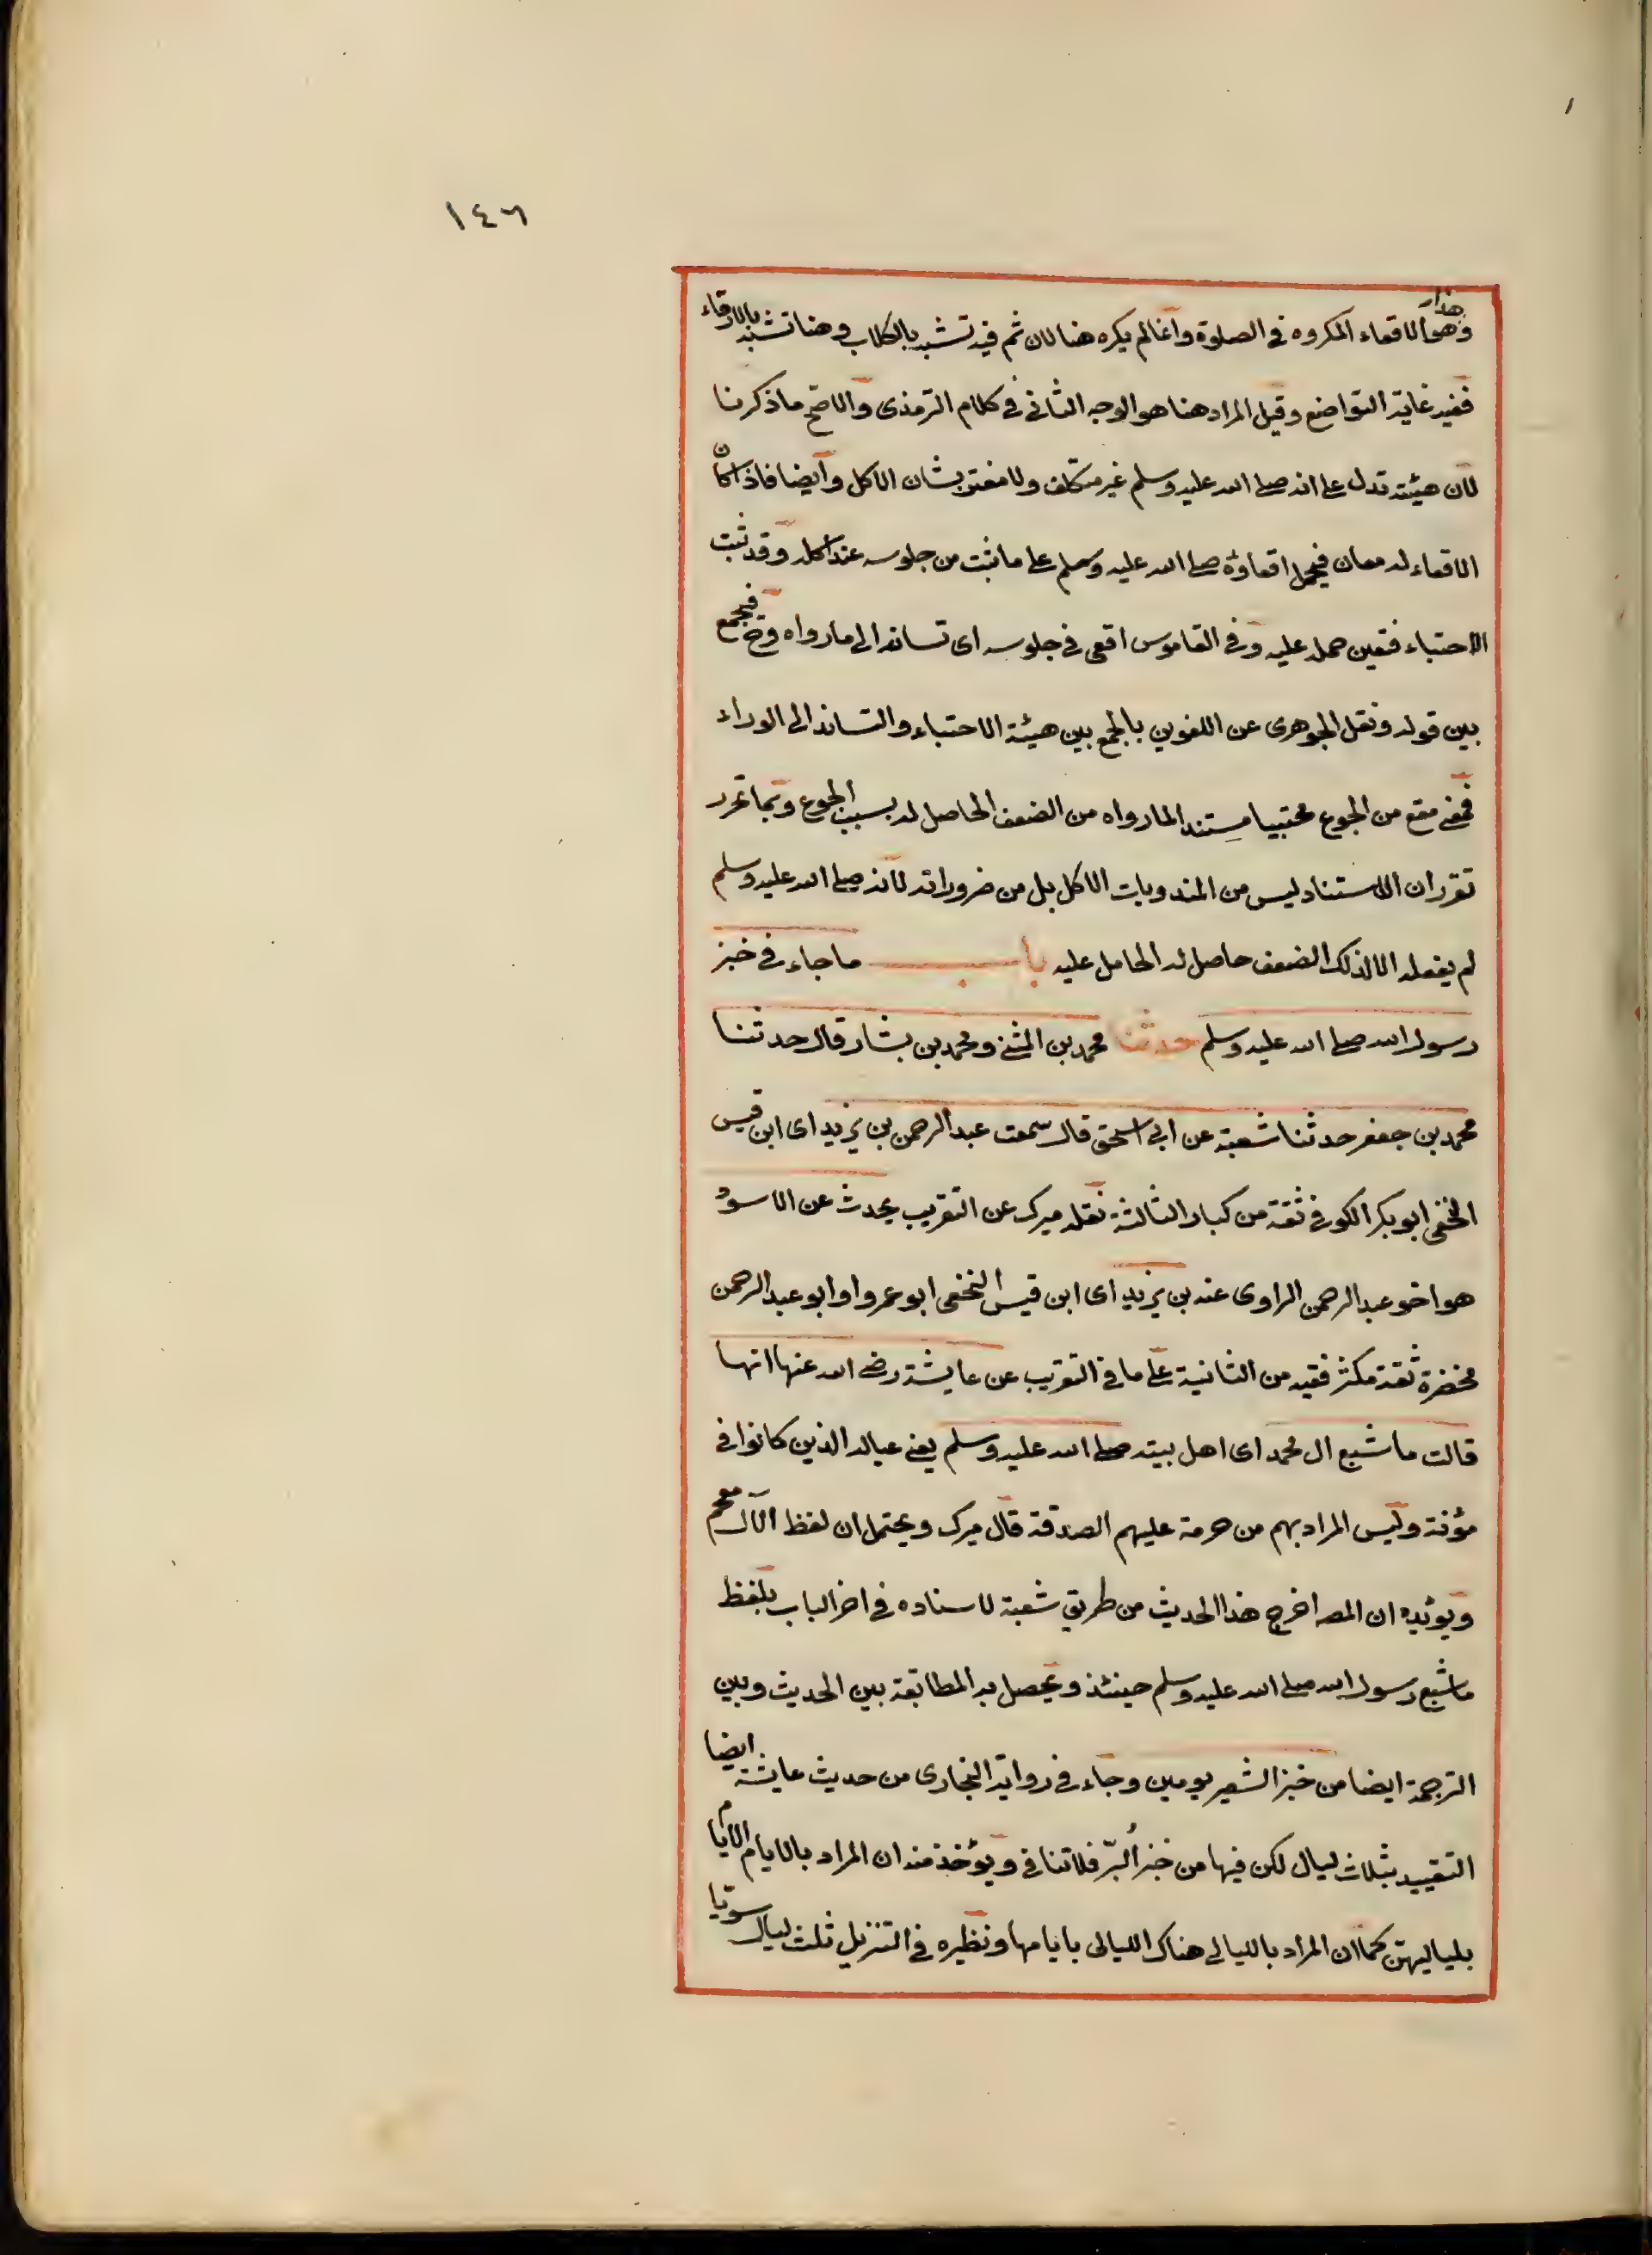 ١٤٦
وهذا هو الاقعاء المكروه في الصلوة وانما لم يكره هنا لان ثم فيه تشبه بالكلاب وهنا تشبه بالارقاء
ففيه غاية التواضع وقيل المراد هنا هو الوجه الثاني في كلام الترمذي والاصح ما ذكرنا
لان هيئته تدل على انه صلى الله عليه وسلم غير متكلف ولا معتن بشان الاكل وايضا فاذا كان
الاقعاء له معان فيحمل اقعاؤه صلى الله عليه وسلم على ما ثبت من جلوسه عند اكله وقد ثبت
الاحتباء فتعين حمله عليه وفي القاموس اقعى في جلوسه اى تساند الى ما رواه وح فيجمع
بين قوله ونقل الجوهرى عن اللغوين بالجمع بين هيئة الاحتباء والتساند الى الوراء
فمعنى مقع من الجوع محتبيا مستندا لما رواه من الضعف الحاصل له بسبب الجوع وبما تحرر
تقرر ان الاستناد ليس من المندوبات الاكل بل من ضروراته لانه صلى الله عليه وسلم
لم يفعله الا لذلك الضعف حاصل له الحامل عليه باب ما جاء في خبز
رسول الله صلى الله عليه وسلم حدثنا محمد بن المثنى ومحمد بن بشار قال حدثنا
محمد بن جعفر حدثنا شعبة عن ابي اسحق قال سمعت عبد الرحمن بن يزيد اى ابن قيس
النخفى ابو بكر الكوفى ثقة من كبار الثالثة نقله ميرك عن التقريب يحدث عن الاسود
هو اخو عبد الرحمن الراوى عنه بن يزيد اى ابن قيس النخفى ابو عمرو او ابو عبد الرحمن
مخضرة ثقة مكثر فقيه من الثانية على ما في التقريب عن عايشة رضى الله عنها انها
قالت ما شبع ال محمد اى اهل بيته صلى الله عليه وسلم يعنى عياله الذين كانوا في
مؤنته وليس المراد بهم من حرمة عليهم الصدقة قال ميرك ويحتمل ان لفظ الآل مقحم
ويؤيده ان المصـ اخرج هذا الحديث من طريق شعبة لاسناده في اخر الباب بلفظ
ما شبع رسول الله صلى الله عليه وسلم حينئذ ويحصل به المطابقة بين الحديث وبين
الترجمة ايضا من خبز الشعير يومين وجاء في رواية البخارى من حديث عايشة ايضا
التقييد بثلاث ليال لكن فيها من خبز البر فلا تنافى ويؤخذ منه ان المراد بالايام الايام
بلياليهن كما ان المراد بالليالى هناك الليالى بايامها ونظيره في التنزيل ثلث ليال سويا